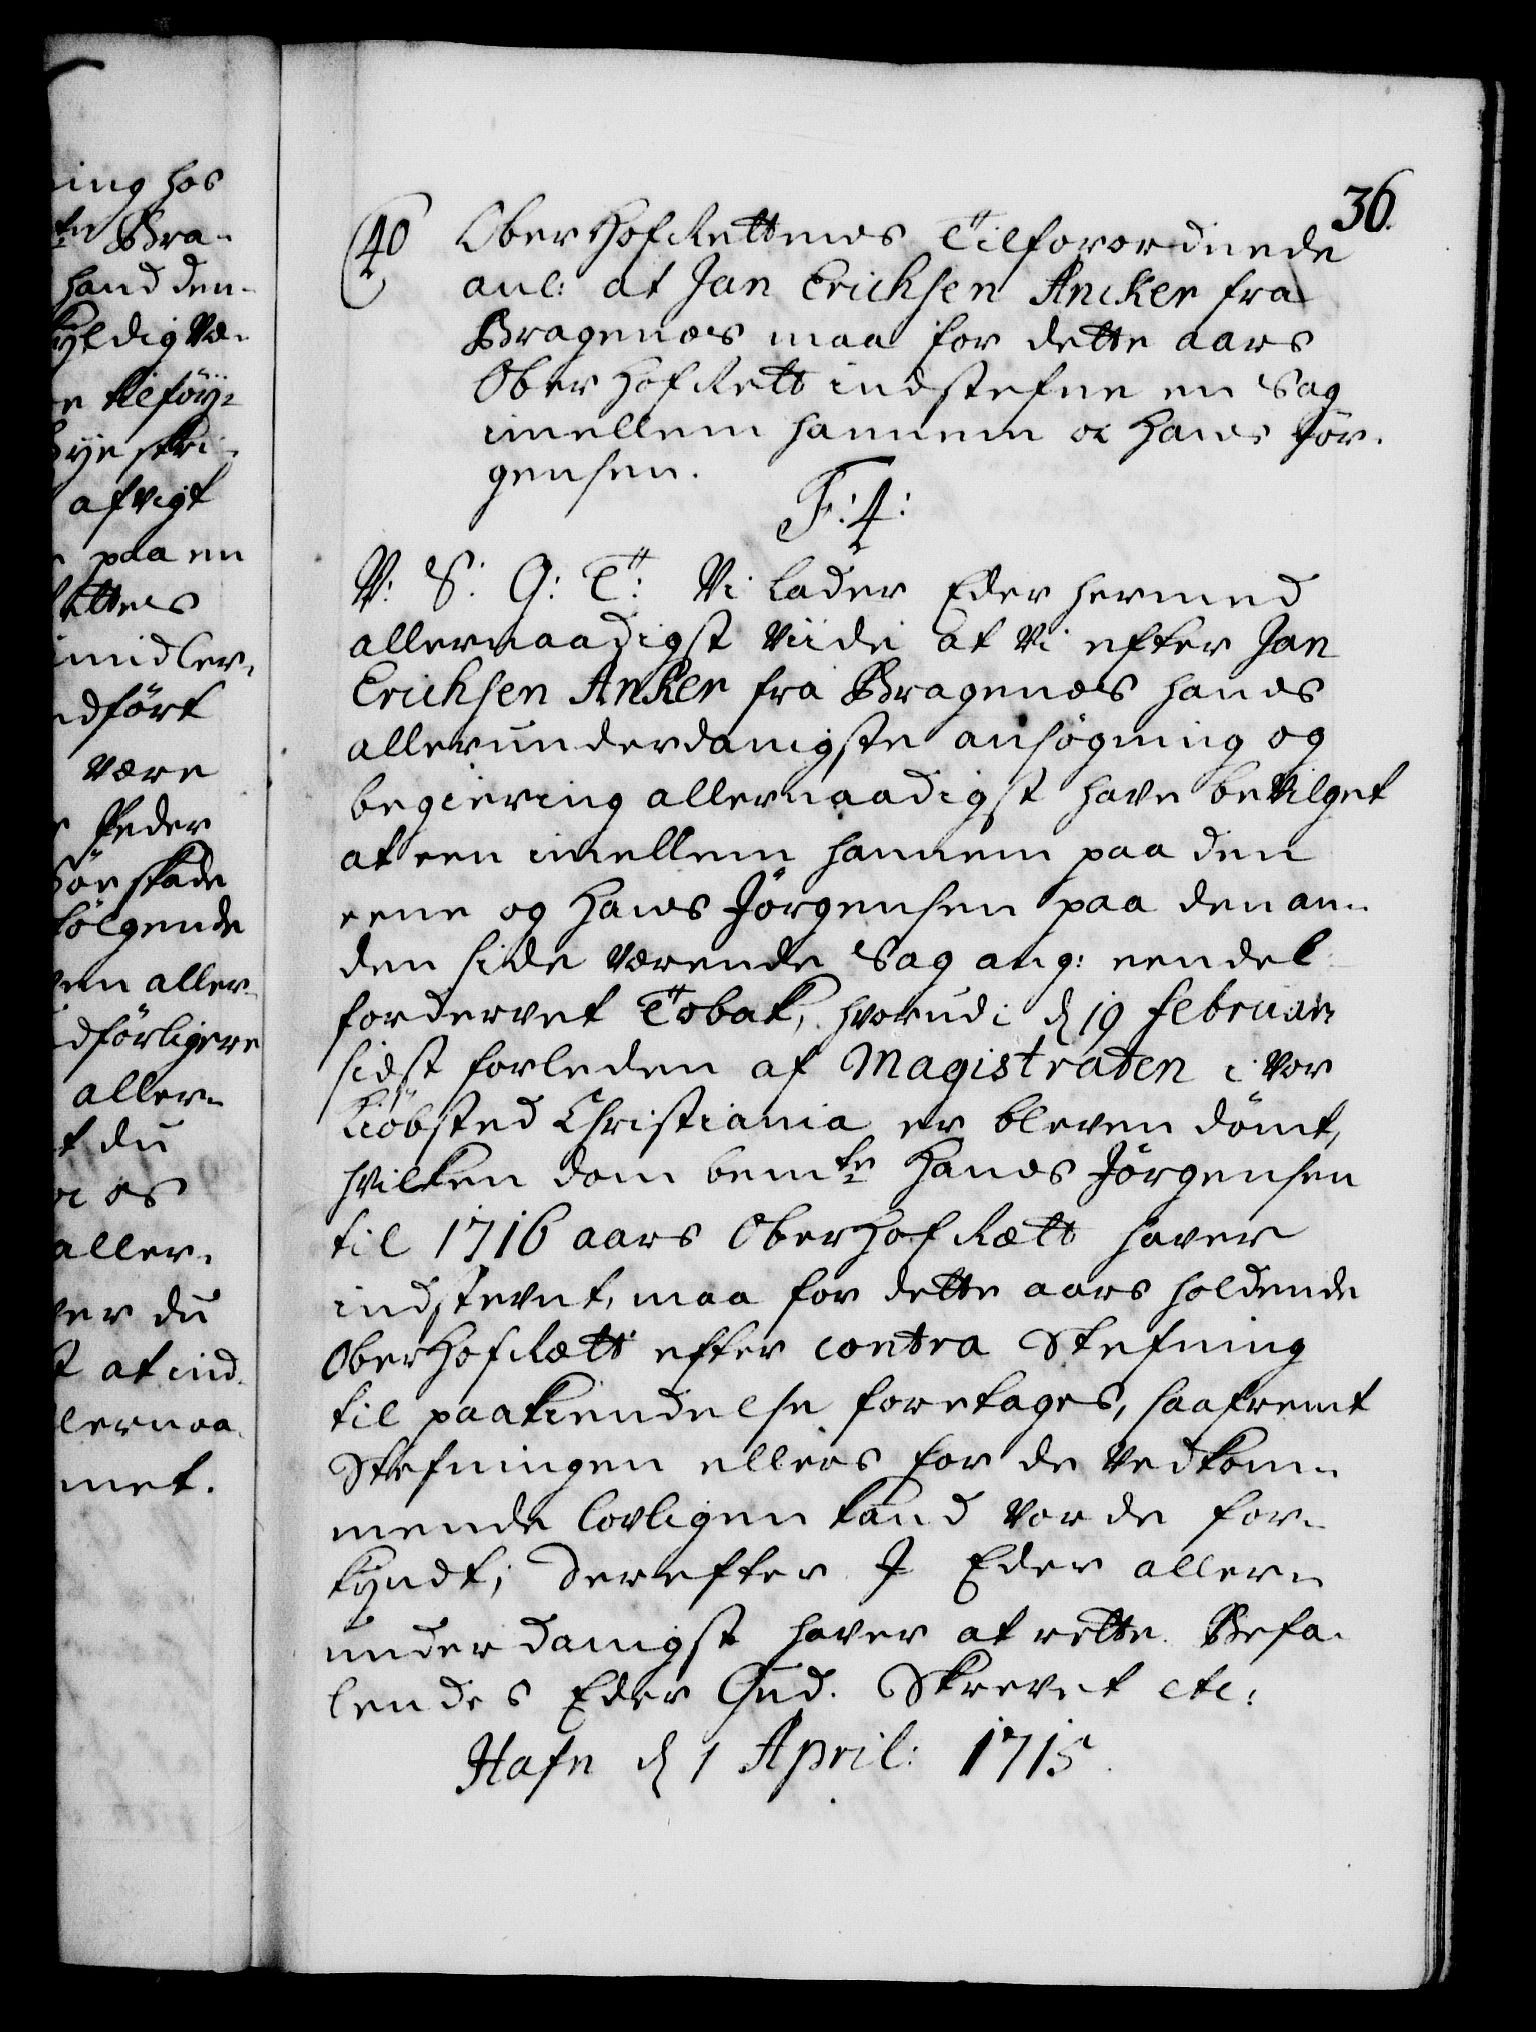 ing hos
te Bra-
hand den-
kyldig Væ-
e tilföy-
bye skri-
afvigt
paa en
ettens
imidler-
dfört
være
Peder
Söe skade
følgende
em aller-
dförligere
aller-
t du
oc os
aller-
ver du
t at ind-
lernaa-
met.
36.
40
Ober Hof Rettens Tilforordnede
anl: at Jan Erichsen Ancker fra
Bragenæs maa for dette aars
Ober Hof Rett indstefne en Sag
imellem hannem oc Hans Jör-
gensen.
F: 4:
V: S: G: T: Vi lader Eder hermed
allernaadigst Viide at Vi efter Jan
Erichsen Anker fra Bragenæs hans
allerunderdanigste ansögning og
begiering allernaadigst have bevilget
at een imellem hannem paa den
eene og Hans Jörgensen paa den an-
den side værende Sag ang: eendel
fordervet Tobak, hvorudi d 19 Februar
sidst forleden af Magistraten i Vor
Kiöbsted Christiania er bleven dömt,
hvilken dom bemte Hans Jörgensen
til 1716 aars Ober Hof Rætt haver
indstevnt, maa for dette aars holdende
Ober Hof Rætt efter contra Stefning
til paakiendelse foretages, saafremt
Stefningen ellers for de Vedkom-
mende lovligen kand vorde for-
kyndt; Derefter I Eder aller-
underdanigst haver at rette. Befa-
lendes Eder Gud. Skrevet etc:
Hafn d 1 April: 1715.